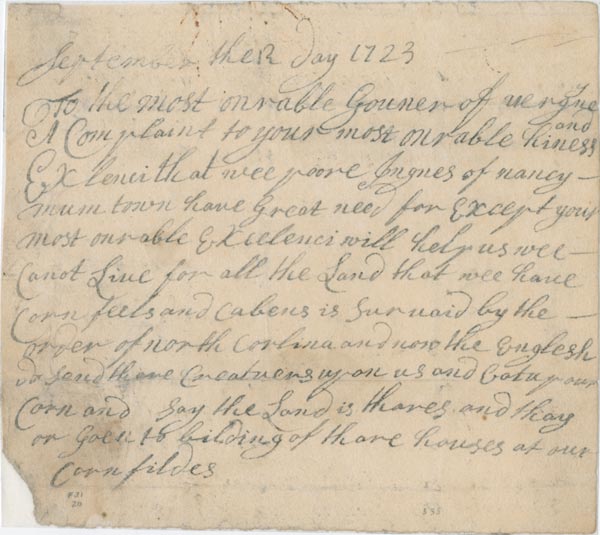 September the 12 Day 1723
To the most onrable Gouner of uergne
A Complaint to your most onrable hiness and
Exlenci that wee poore Ingnes of nancy–
mum town have Great need for Except your
most onrable Excelenci will help us wee –
Canot Liue for all the Land that wee have
Corn feels and Cabens is Suruaid by the –
order of north Corlina and now the Englesh
do send thare Creatuers upon us and Eat up our
Corn and Say the Land is thares and thay
or Goen to bilding of thare houses at our
Corn fildes